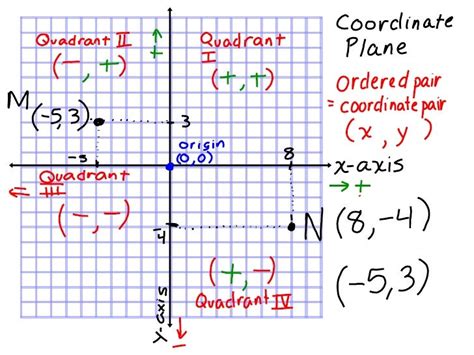 Coordinate
Plane
Quadrant II
(-, +)
+
Quadrant
I
(+, +)
Ordered pair
= coordinate pair
(x, y)
M(-5,3)
3
origin
(0,0)
-5
8
x-axis
+
Quadrant
III
(-, -)
-4
N (8,-4)
(+, -)
Quadrant IV
(-5,3)
y-axis
-